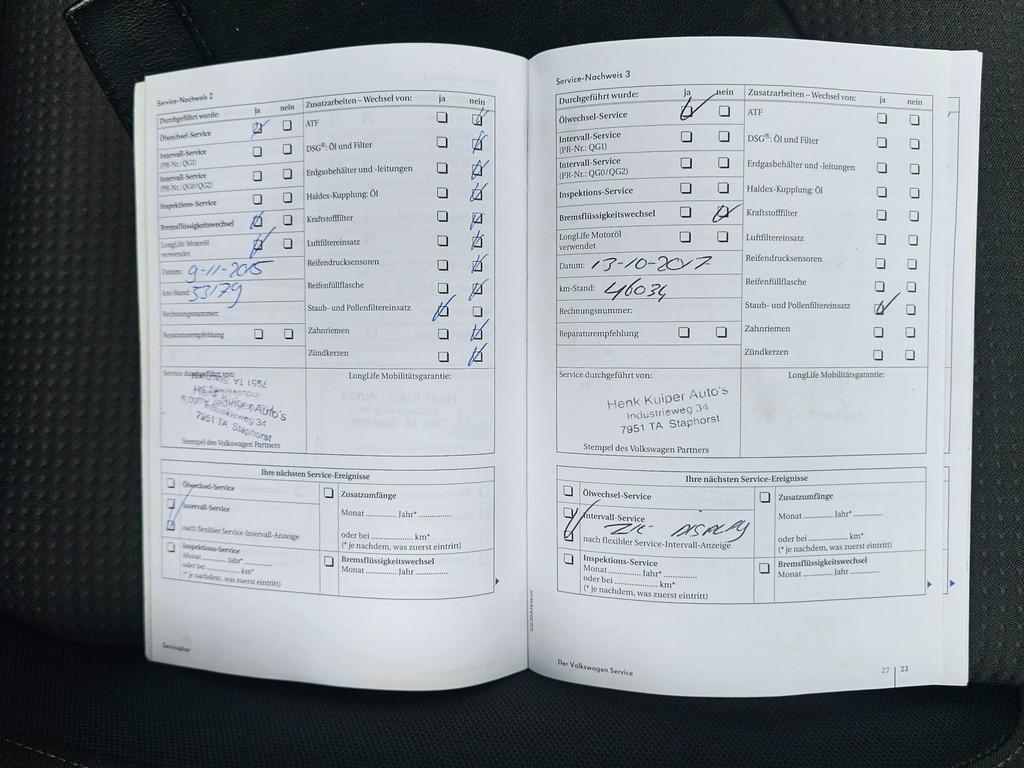 Service-Nachweis 2
Durchgeführt wurde: ja nein
Ölwechsel-Service
Intervall-Service
(PR-Nr.: QG1)
Intervall-Service
(PR-Nr.: QG0/QG2)
Inspektions-Service
Bremsflüssigkeitswechsel
LongLife Motoröl
verwendet
Datum: 9-11-2015
km-Stand: 33179
Rechnungsnummer:
Reparaturempfehlung
Zusatzarbeiten – Wechsel von: ja nein
ATF
DSG®: Öl und Filter
Erdgasbehälter und -leitungen
Haldex-Kupplung: Öl
Kraftstofffilter
Luftfiltereinsatz
Reifendrucksensoren
Reifenfüllflasche
Staub- und Pollenfiltereinsatz
Zahnriemen
Zündkerzen
Service durchgeführt von:
Henk Kuiper Auto's
Industrieweg 34
7951 TA Staphorst
Stempel des Volkswagen Partners
LongLife Mobilitätsgarantie:
Ihre nächsten Service-Ereignisse
Ölwechsel-Service
Intervall-Service
nach flexibler Service-Intervall-Anzeige
Inspektions-Service
Monat Jahr*
oder bei km*
(* je nachdem, was zuerst eintritt)
Zusatzumfänge
Monat Jahr*
oder bei km*
(* je nachdem, was zuerst eintritt)
Bremsflüssigkeitswechsel
Monat Jahr
Serviceplan
Service-Nachweis 3
Durchgeführt wurde: ja nein
Ölwechsel-Service
Intervall-Service
(PR-Nr.: QG1)
Intervall-Service
(PR-Nr.: QG0/QG2)
Inspektions-Service
Bremsflüssigkeitswechsel
LongLife Motoröl
verwendet
Datum: 13-10-2017
km-Stand: 46034
Rechnungsnummer:
Reparaturempfehlung
Zusatzarbeiten – Wechsel von: ja nein
ATF
DSG®: Öl und Filter
Erdgasbehälter und -leitungen
Haldex-Kupplung: Öl
Kraftstofffilter
Luftfiltereinsatz
Reifendrucksensoren
Reifenfüllflasche
Staub- und Pollenfiltereinsatz
Zahnriemen
Zündkerzen
Service durchgeführt von:
Henk Kuiper Auto's
Industrieweg 34
7951 TA Staphorst
Stempel des Volkswagen Partners
LongLife Mobilitätsgarantie:
Ihre nächsten Service-Ereignisse
Ölwechsel-Service
Intervall-Service
DISPLAY
nach flexibler Service-Intervall-Anzeige
Inspektions-Service
Monat Jahr*
oder bei km*
(* je nachdem, was zuerst eintritt)
Zusatzumfänge
Monat Jahr*
oder bei km*
(* je nachdem, was zuerst eintritt)
Bremsflüssigkeitswechsel
Monat Jahr
Der Volkswagen Service
22 | 23